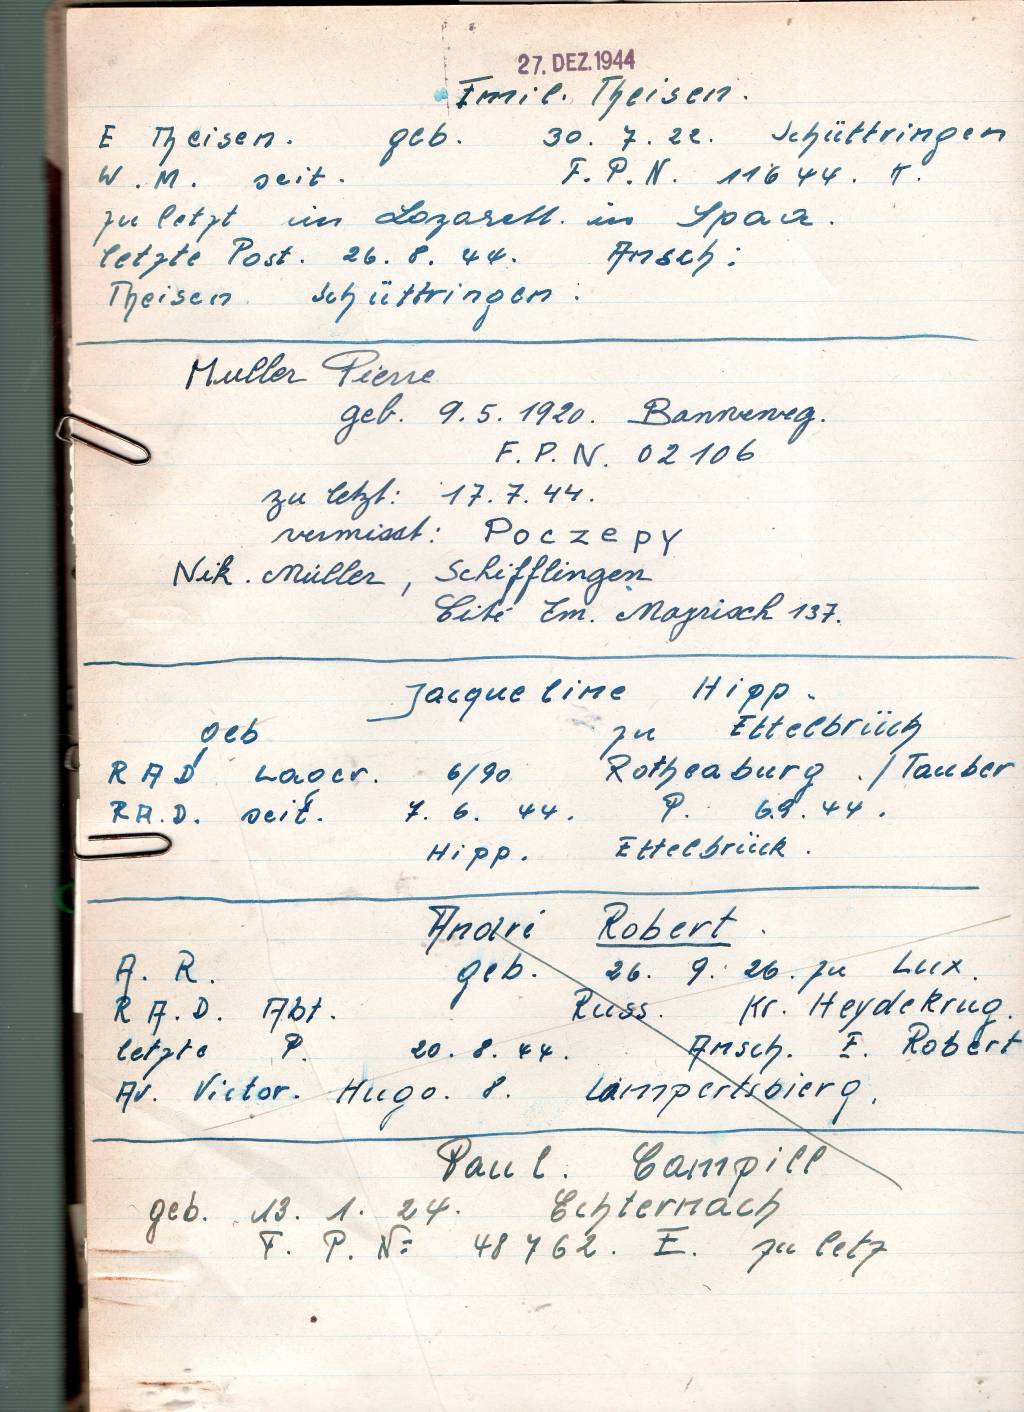 27. DEZ. 1944
Emil. Theisen.
E Theisen. geb. 30. 7. 22. Schüttringen
W. M. seit. F. P. N. 11644. K.
zu letzt im Lazarett. in Spaa.
letzte Post. 26. 8. 44. Ansch:
Theisen Schüttringen:
Muller Pierre
geb. 9. 5. 1920. Bonneweg.
F. P. N. 02106
zu letzt: 17. 7. 44.
vermisst: Poczepy
Nik. Müller, Schifflingen
Cité Em. Mayrisch 137.
Jacqueline Hipp.
geb zu Ettelbrück
RAD Lager. 6/90 Rothenburg ./Tauber
RA.D. seit. 7. 6. 44. P. 6.9. 44.
Hipp. Ettelbrück.
André Robert.
A. R. geb. 26. 9. 26. zu Lux.
R A. D. Abt. Russ. Kr. Heydekrug.
letzte P. 20. 8. 44. Ansch. E. Robert
Av. Victor. Hugo. 8. Lampertsbierg.
Paul. Campill
geb. 13. 1. 24. Echternach
F. P. No: 48762. E. zu letz